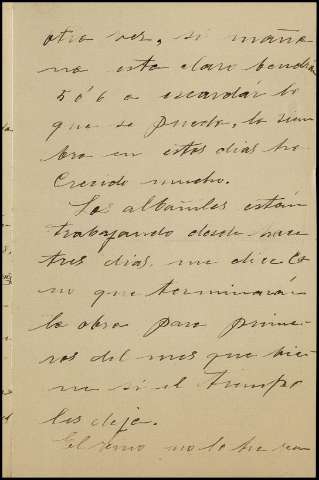 otra vez, si maña
na esta claro bendran
5 ó 6 a escardar lo
que se pueda, lo siem
bra en estos dias ha
Crecido mucho.
Los albañiles están
trabajando desde hace
tres dias. me dice Ce
no que terminarán
la obra para prime-
ros del mes que bie-
ne si el tiempo
les deja.
El vino no lo he